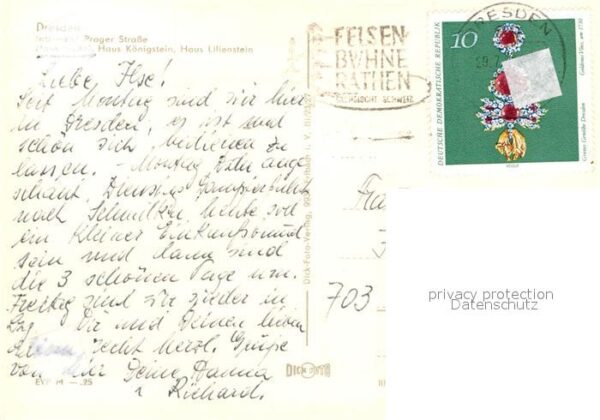 Dresden
Prager Straße
Haus Königstein, Haus Lilienstein
Liebe Ilse!
Seit Montag sind wir hier
in Dresden, es ist mal
schön sich bedienen zu
lassen. - Montag ange-
schaut, Dienstag Dampferfahrt
nach Schmilka, heute soll
ein kleiner Einkaufsbummel
sein und dann sind
die 3 schönen Tage um.
Freitag sind wir wieder in
Dir und Deinen lieben
recht herzl. Grüße
von Deine Hanna
Richard.
EVP M —.25
703
DRESDEN
FELSEN
BÜHNE
RATHEN
SÄCHSISCHE SCHWEIZ
10
DEUTSCHE DEMOKRATISCHE REPUBLIK
Goldenes Vlies, um 1730
Grünes Gewölbe Dresden
Dick-Foto-Verlag
DICK FOTO
privacy protection
Datenschutz